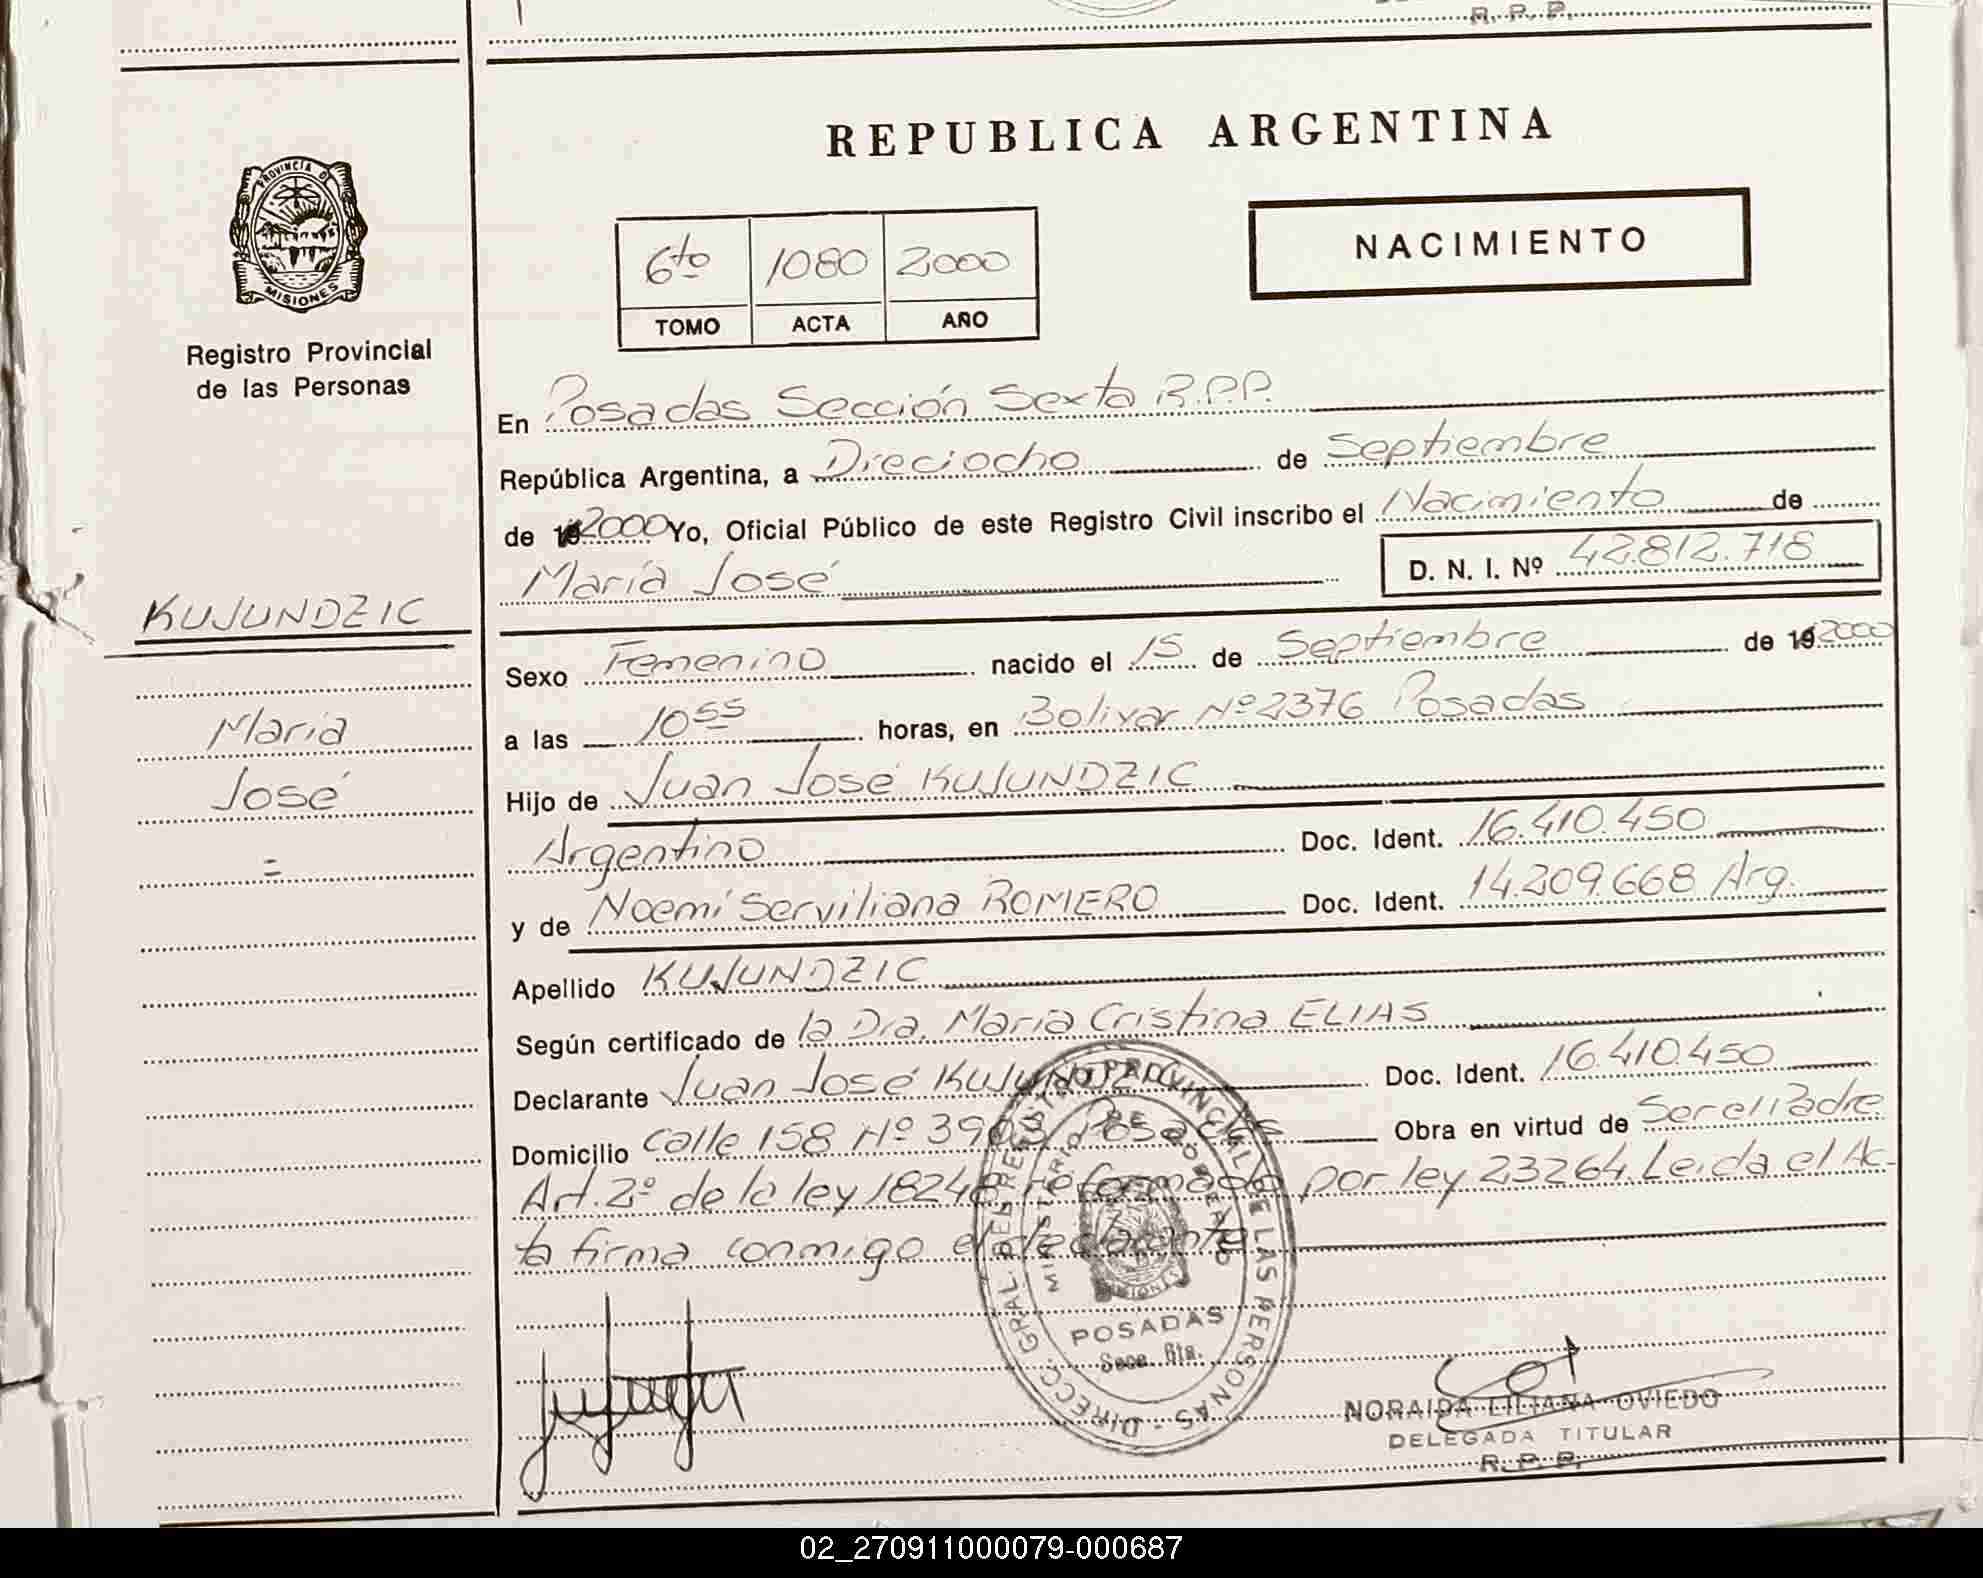 R. P. P.
REPUBLICA ARGENTINA
PROVINCIA DE
MISIONES
NACIMIENTO
6to 1080 2000
TOMO ACTA AÑO
Registro Provincial
de las Personas
En Posadas Sección Sexta R.P.P.
República Argentina, a Dieciocho de Septiembre
de 2000 Yo, Oficial Público de este Registro Civil inscribo el Nacimiento de
María José D. N. I. Nº 42.812.718
KUJUNDZIC
Sexo Femenino nacido el 15 de Septiembre de 19 2000
María
a las 10 55 horas, en Bolivar Nº 2376 Posadas
José
Hijo de Juan José KUJUNDZIC
=
Argentino Doc. Ident. 16.410.450
y de Noemí Serviliana ROMERO Doc. Ident. 14.209.668 Arg.
Apellido KUJUNDZIC
Según certificado de la Dra. María Cristina ELIAS
Declarante Juan José KUJUNDZIC Doc. Ident. 16.410.450
Domicilio Calle 158 Nº Posadas Obra en virtud de Ser el Padre
Art. 2º de la ley 18248 reformado por ley 23264. Leída el Ac-
ta firma conmigo el declarante
DIRECC. GRAL. DEL REGISTRO PROVINCIAL DE LAS PERSONAS
MINISTERIO DE GOBIERNO
MISIONES
POSADAS
Secc. 6ta.
NORAIDA LILIANA OVIEDO
DELEGADA TITULAR
R. P. P.
02_270911000079-000687